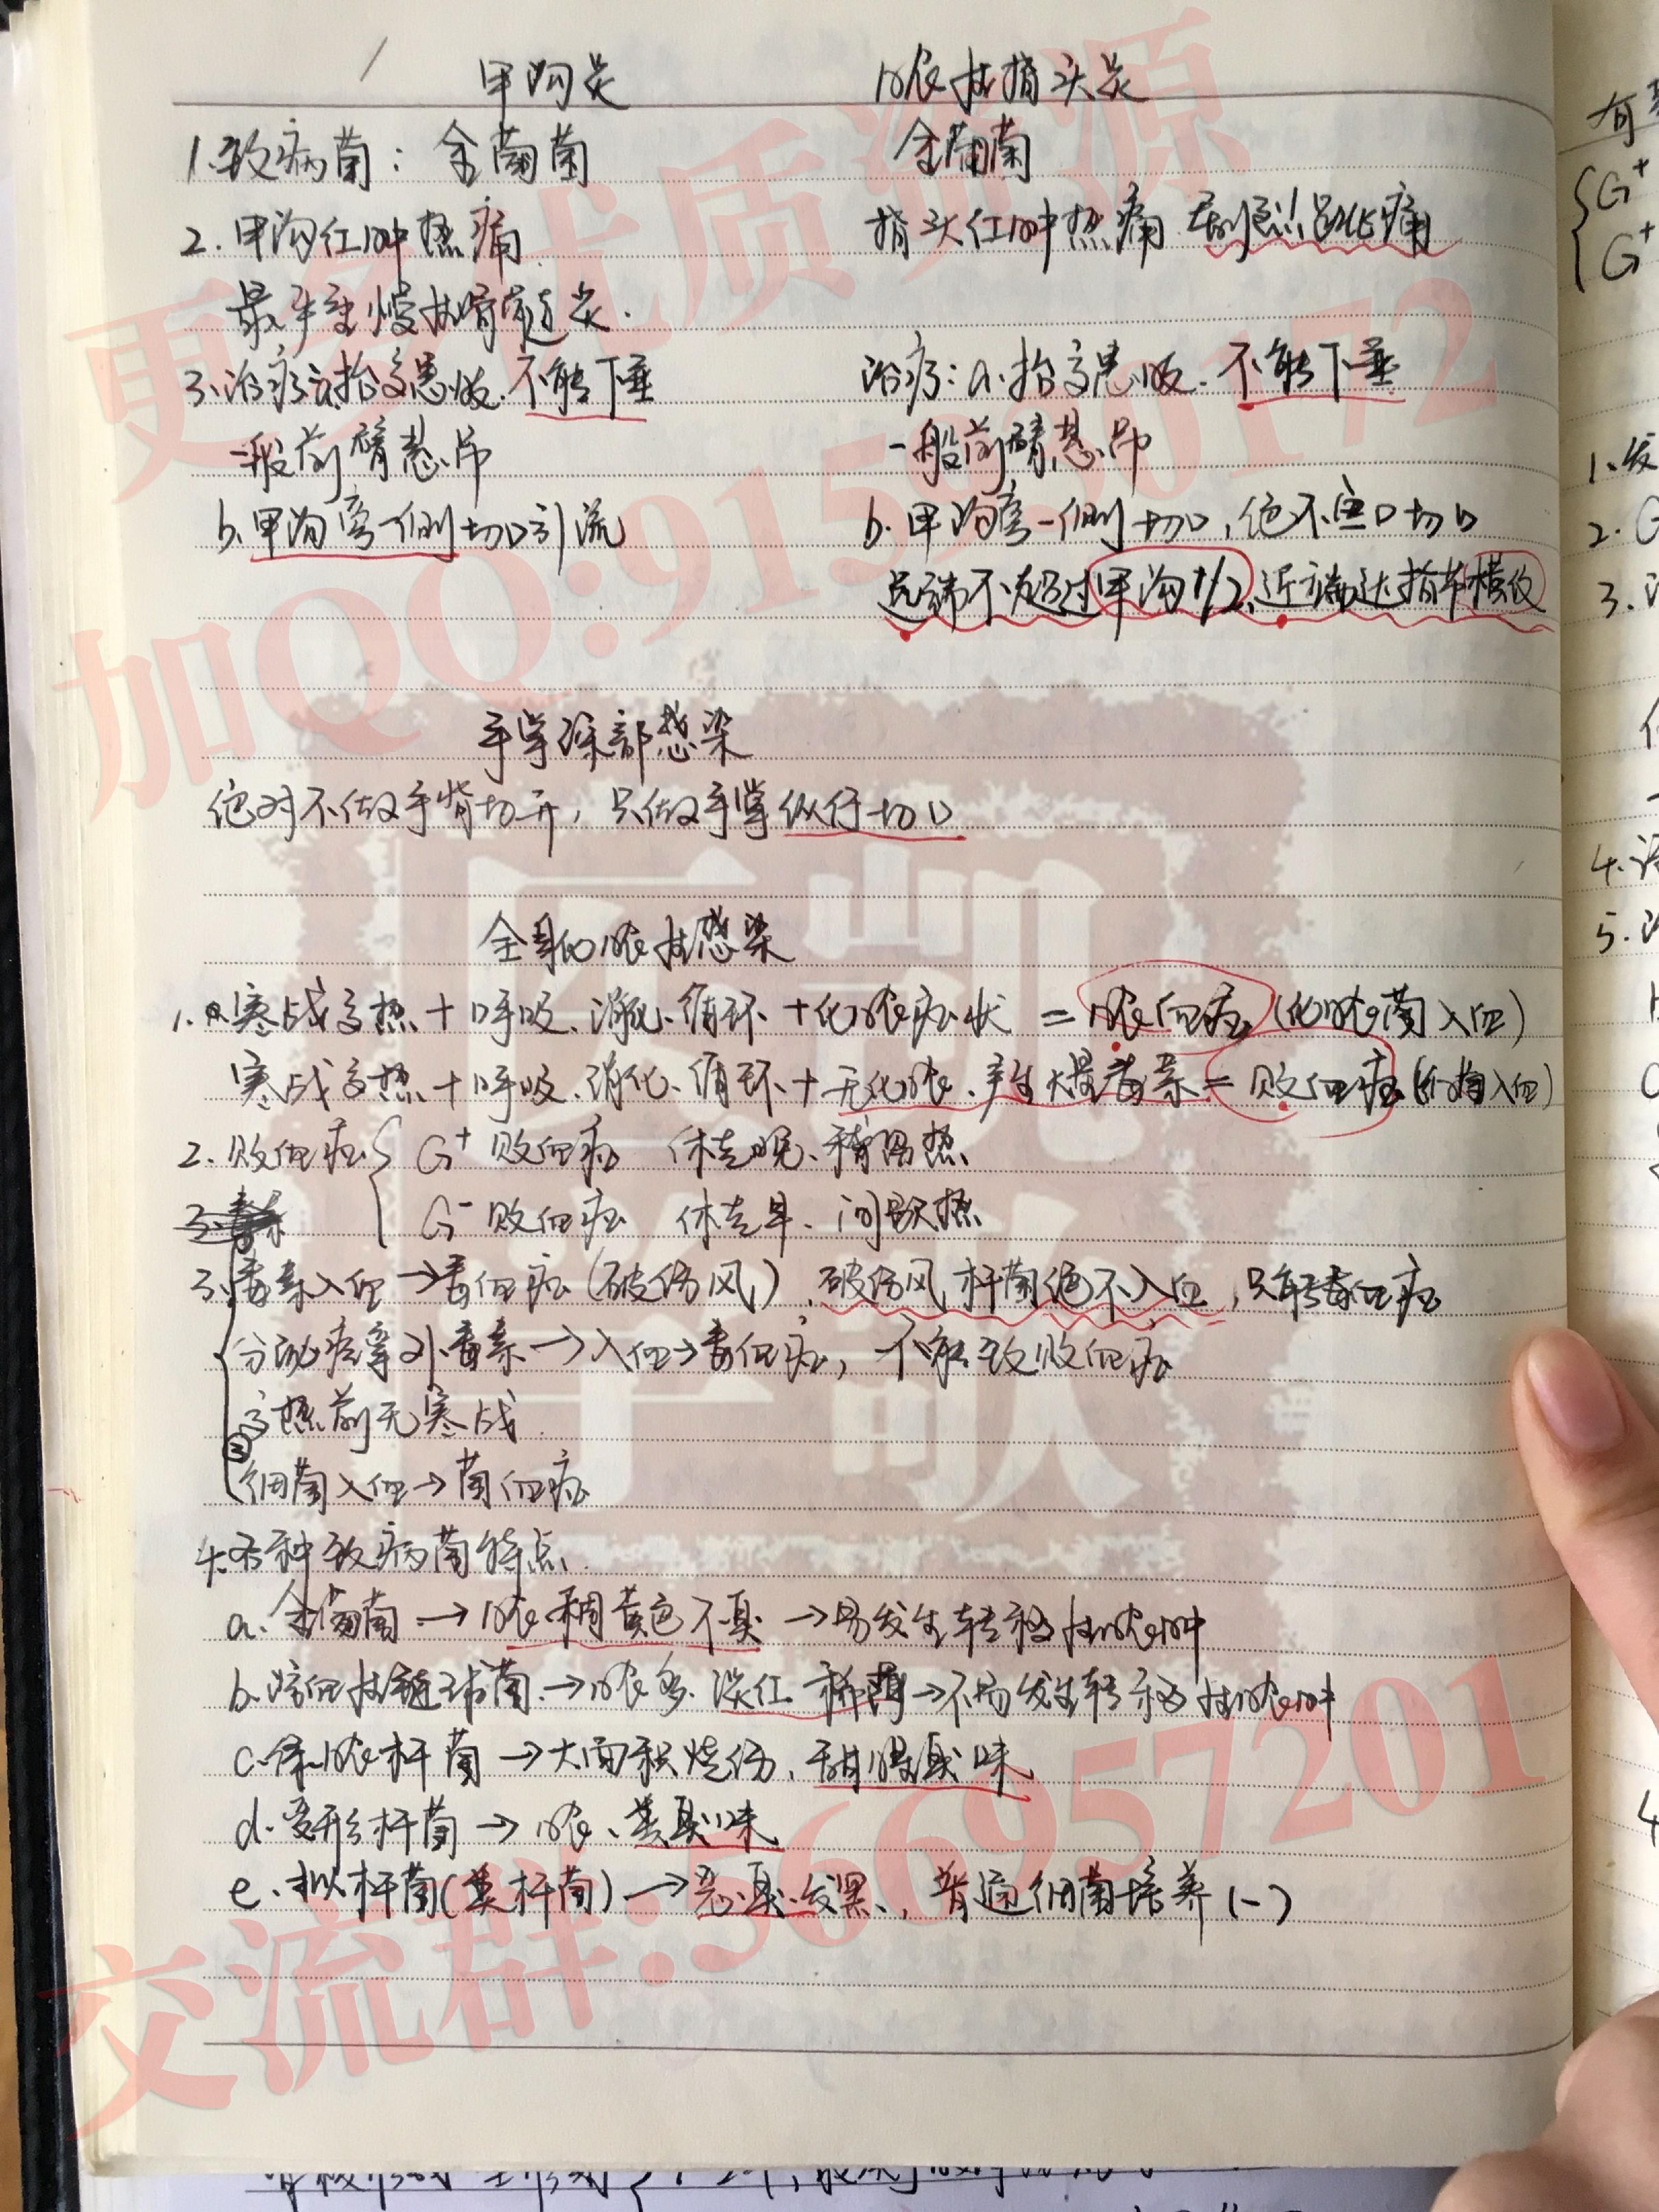 甲沟炎 脓性指头炎
1.致病菌：金葡菌 金葡菌
2.甲沟红肿热痛 指头红肿热痛 剧烈点跳痛
最严重慢性骨髓炎.
3.治疗:a抬高患肢.不能下垂 治疗：a.抬高患肢.不能下垂
一般前臂悬吊 一般前臂悬吊
b.甲沟旁一侧切口引流 b.甲沟旁一侧切口，绝不鱼口切口
远端不超过甲沟1/2、近端达指节横纹
手掌深部感染
绝对不做手背切开，只做手掌纵行切口
全身化脓性感染
1.寒战高热＋呼吸、消化、循环＋化脓症状 = 脓血症（化脓菌入血）
寒战高热＋呼吸、消化、循环＋无化脓、产生大量毒素 = 败血症（细菌入血）
2.败血症{ G⁺ 败血症 休克晚、稽留热
G⁻ 败血症 休克早、间歇热
3.毒素入血→毒血症（破伤风）、破伤风杆菌绝不入血，只能毒血症
分泌痉挛外毒素→入血→毒血症，不能致败血症
高热前无寒战.
细菌入血→菌血症
4.各种致病菌特点.
a.金葡菌→脓稠黄色不臭→易发生转移性脓肿
b.溶血性链球菌→脓多、淡红 稀薄→不易发生转移性脓肿
c.绿脓杆菌→大面积烧伤、甜腥臭味
d.变形杆菌→脓、粪臭味
e.拟杆菌(类杆菌)→恶臭、发黑、，普通细菌培养(-)
G⁺
G⁺
1.发
2.G
3.
4.
5.
4
更多优质资源
加QQ:915330172
医凯
学歌
交流群:566957201